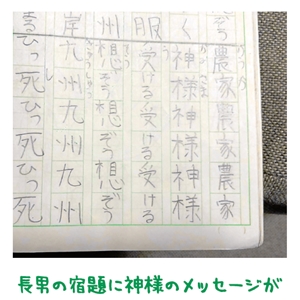 農家農家農家
く
神様神様神様
服
受ける受ける受ける
州
想ぞう想ぞう想ぞう
岸
九州九州九州
る
ひっ死ひっ死ひっ死
長男の宿題に神様のメッセージが